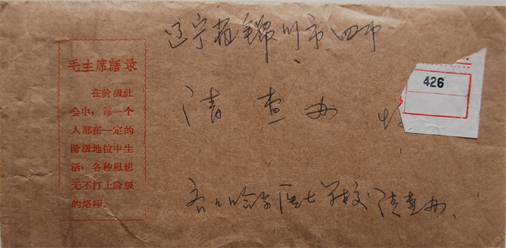 毛主席語录
在阶級社
会中，每一个
人都在一定的
阶級地位中生
活，各种思想
无不打上阶級
的烙印。
辽宁省锦州市四中
426
清查办
齐齐哈尔医士学校清查办